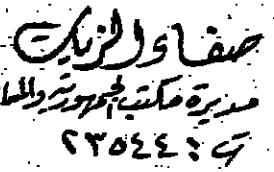 صفاء الزيات
مديرة مكتب الجمهورية والمسا
ت : ٢٣٥٤٤